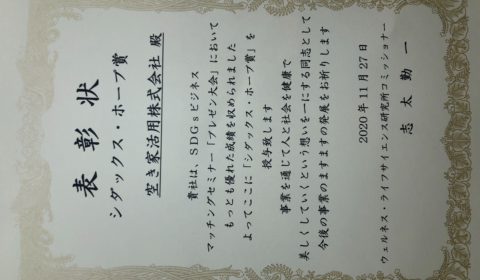 表彰状
シダックス・ホープ賞
空き家活用株式会社 殿
貴社は、SDGsビジネス
マッチングセミナー「プレゼン大会」において
もっとも優れた成績を収められました
よってここに「シダックス・ホープ賞」を
授与致します
事業を通じて人と社会を健康で
美しくしていくという想いを一にする同志として
今後の事業のますますの発展をお祈りします
2020年11月27日
ウェルネス・ライフサイエンス研究所コミッショナー
志太勤一